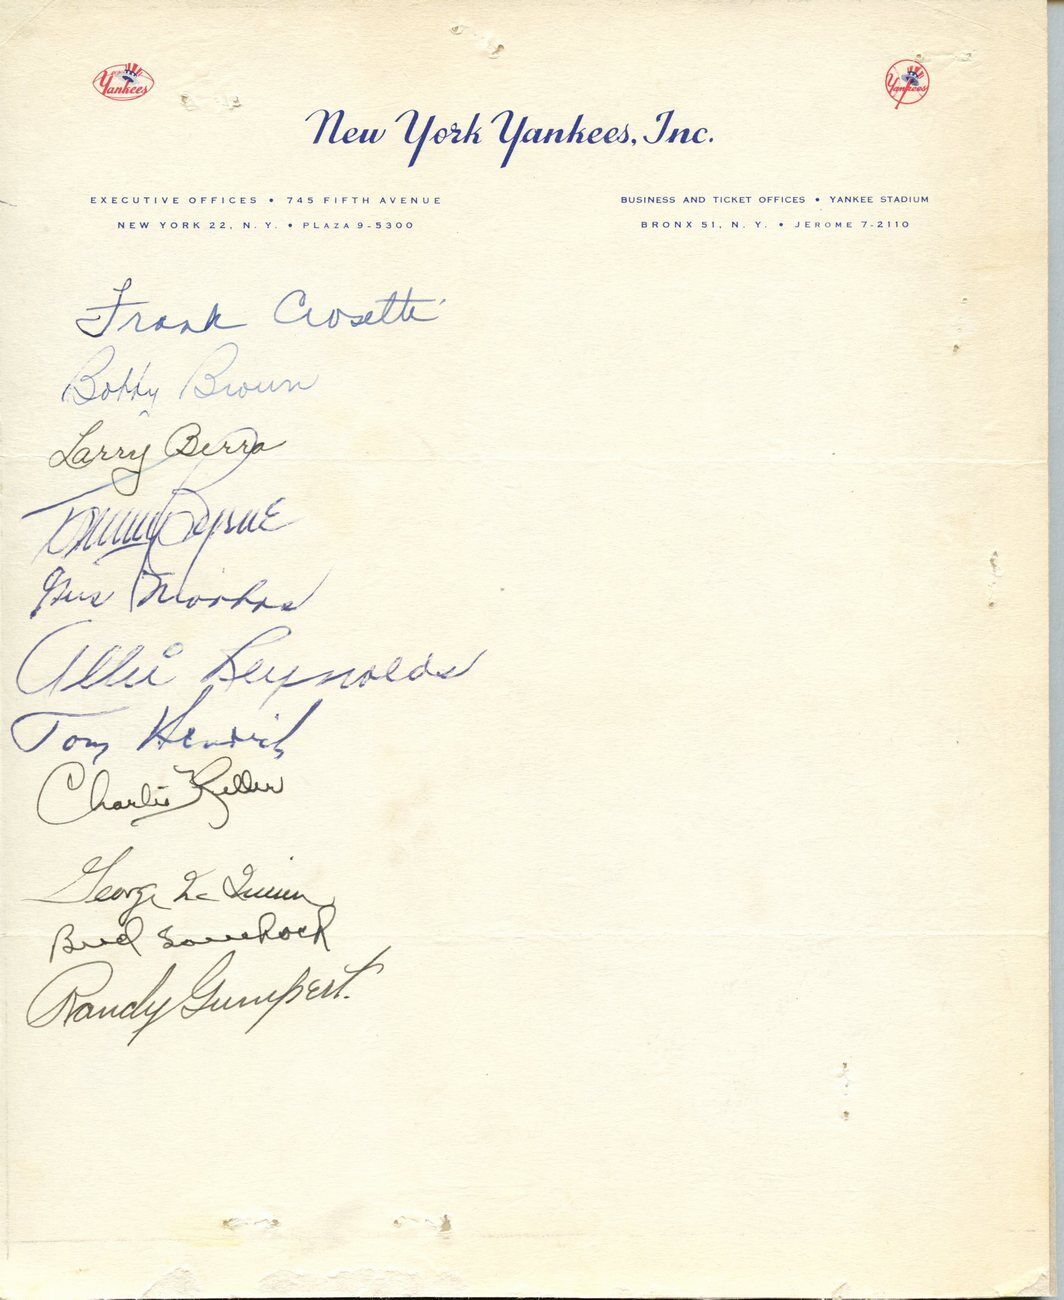 Yankees
Yankees
New York Yankees, Inc.
EXECUTIVE OFFICES • 745 FIFTH AVENUE
NEW YORK 22, N. Y. • PLAZA 9-5300
BUSINESS AND TICKET OFFICES • YANKEE STADIUM
BRONX 51, N. Y. • JEROME 7-2110
Frank Crosetti
Bobby Brown
Larry Berra
Tommy Byrne
Gus
Allie Reynolds
Tom Henrich
Charlie Keller
George McQuinn
Bud Souchock
Randy Gumpert.